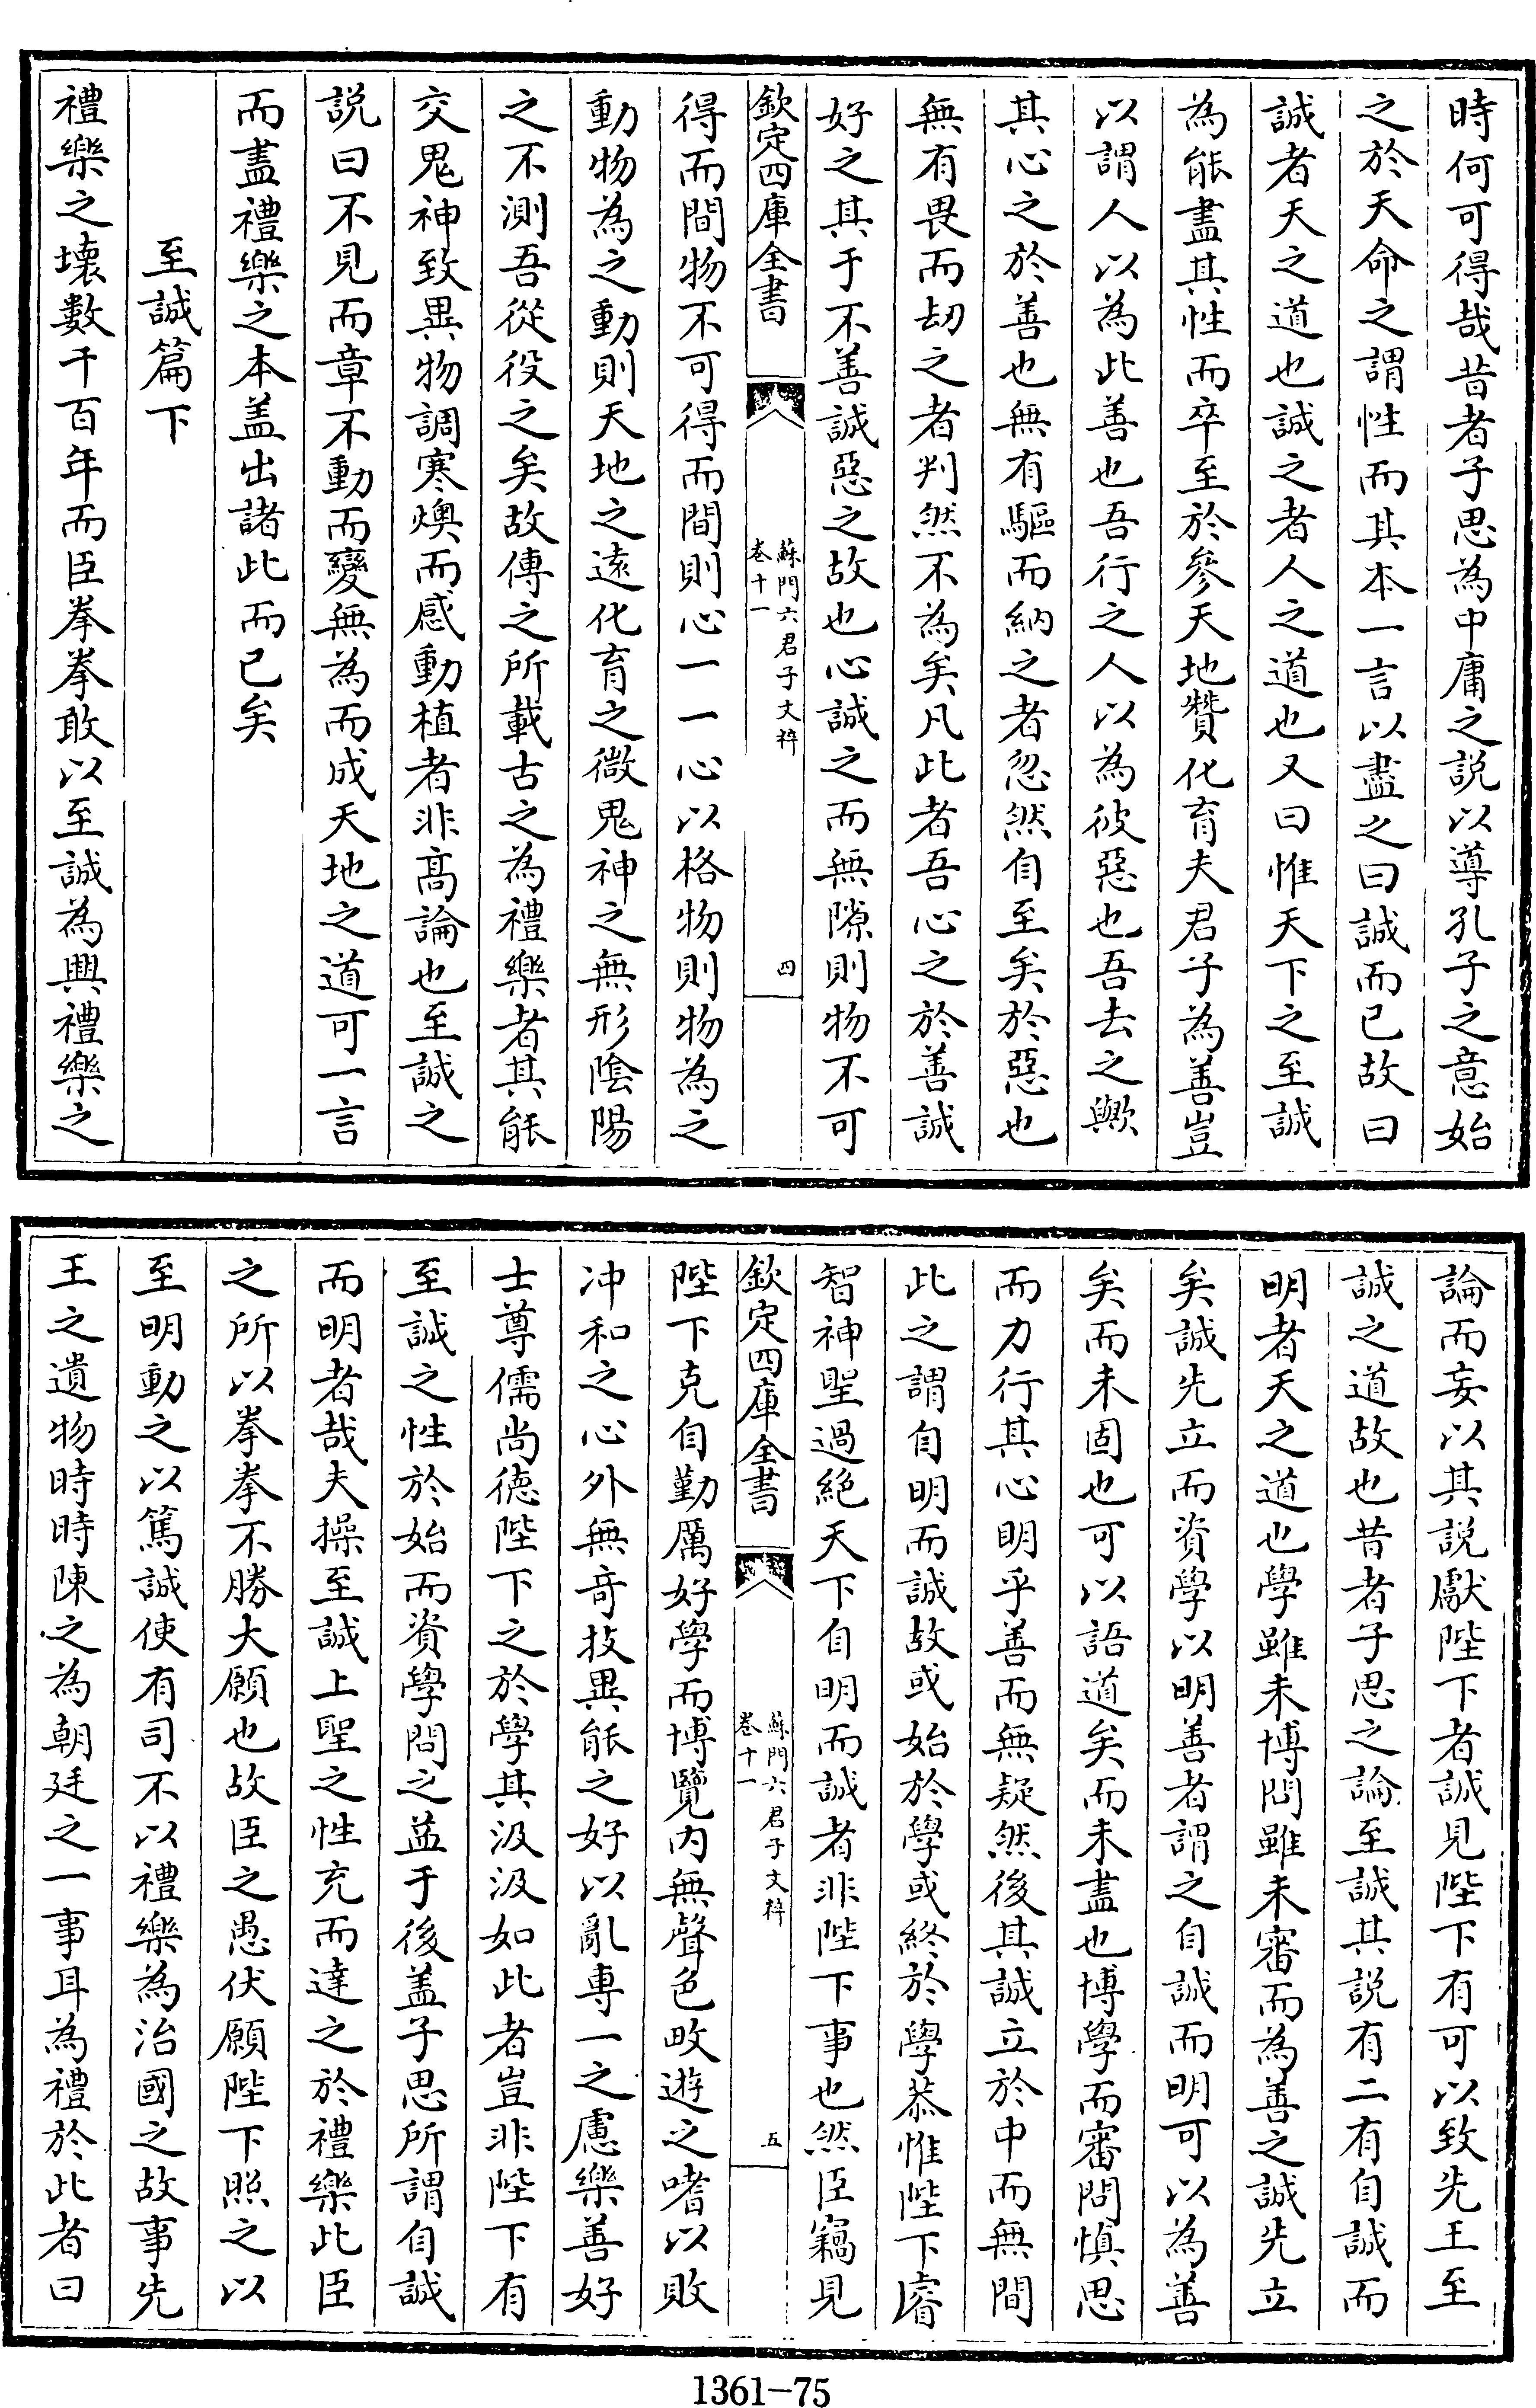 時何可得哉昔者子思為中庸之説以導孔子之意始
之於天命之謂性而其本一言以盡之曰誠而已故曰
誠者天之道也誠之者人之道也又曰惟天下之至誠
為能盡其性而卒至於參天地贊化育夫君子為善豈
以謂人以為此善也吾行之人以為彼惡也吾去之歟
其心之於善也無有驅而納之者忽然自至矣於惡也
無有畏而刧之者判然不為矣凡此者吾心之於善誠
好之其于不善誠惡之故也心誠之而無隙則物不可
欽定四庫全書
蘇門六君子文粹
卷十一
四
得而間物不可得而間則心一一心以格物則物為之
動物為之動則天地之逺化育之微鬼神之無形陰陽
之不測吾從役之矣故傳之所載古之為禮樂者其能
交鬼神致異物調寒燠而感動植者非髙論也至誠之
説曰不見而章不動而變無為而成天地之道可一言
而盡禮樂之本盖出諸此而已矣
至誠篇下
禮樂之壊數千百年而臣拳拳敢以至誠為興禮樂之
論而妄以其説獻陛下者誠見陛下有可以致先王至
誠之道故也昔者子思之論至誠其説有二有自誠而
明者天之道也學雖未博問雖未審而為善之誠先立
矣誠先立而資學以明善者謂之自誠而明可以為善
矣而未固也可以語道矣而未盡也博學而審問慎思
而力行其心明乎善而無疑然後其誠立於中而無間
此之謂自明而誠故或始於學或終於學恭惟陛下睿
智神聖過絶天下自明而誠者非陛下事也然臣竊見
欽定四庫全書
蘇門六君子文粹
卷十一
五
陛下克自勤厲好學而博覽内無聲色畋遊之嗜以敗
冲和之心外無竒技異能之好以亂專一之慮樂善好
士尊儒尚德陛下之於學其汲汲如此者豈非陛下有
至誠之性於始而資學問之益于後盖子思所謂自誠
而明者哉夫操至誠上聖之性充而達之於禮樂此臣
之所以拳拳不勝大願也故臣之愚伏願陛下照之以
至明動之以篤誠使有司不以禮樂為治國之故事先
王之遺物時時陳之為朝廷之一事耳為禮於此者曰
1361-75